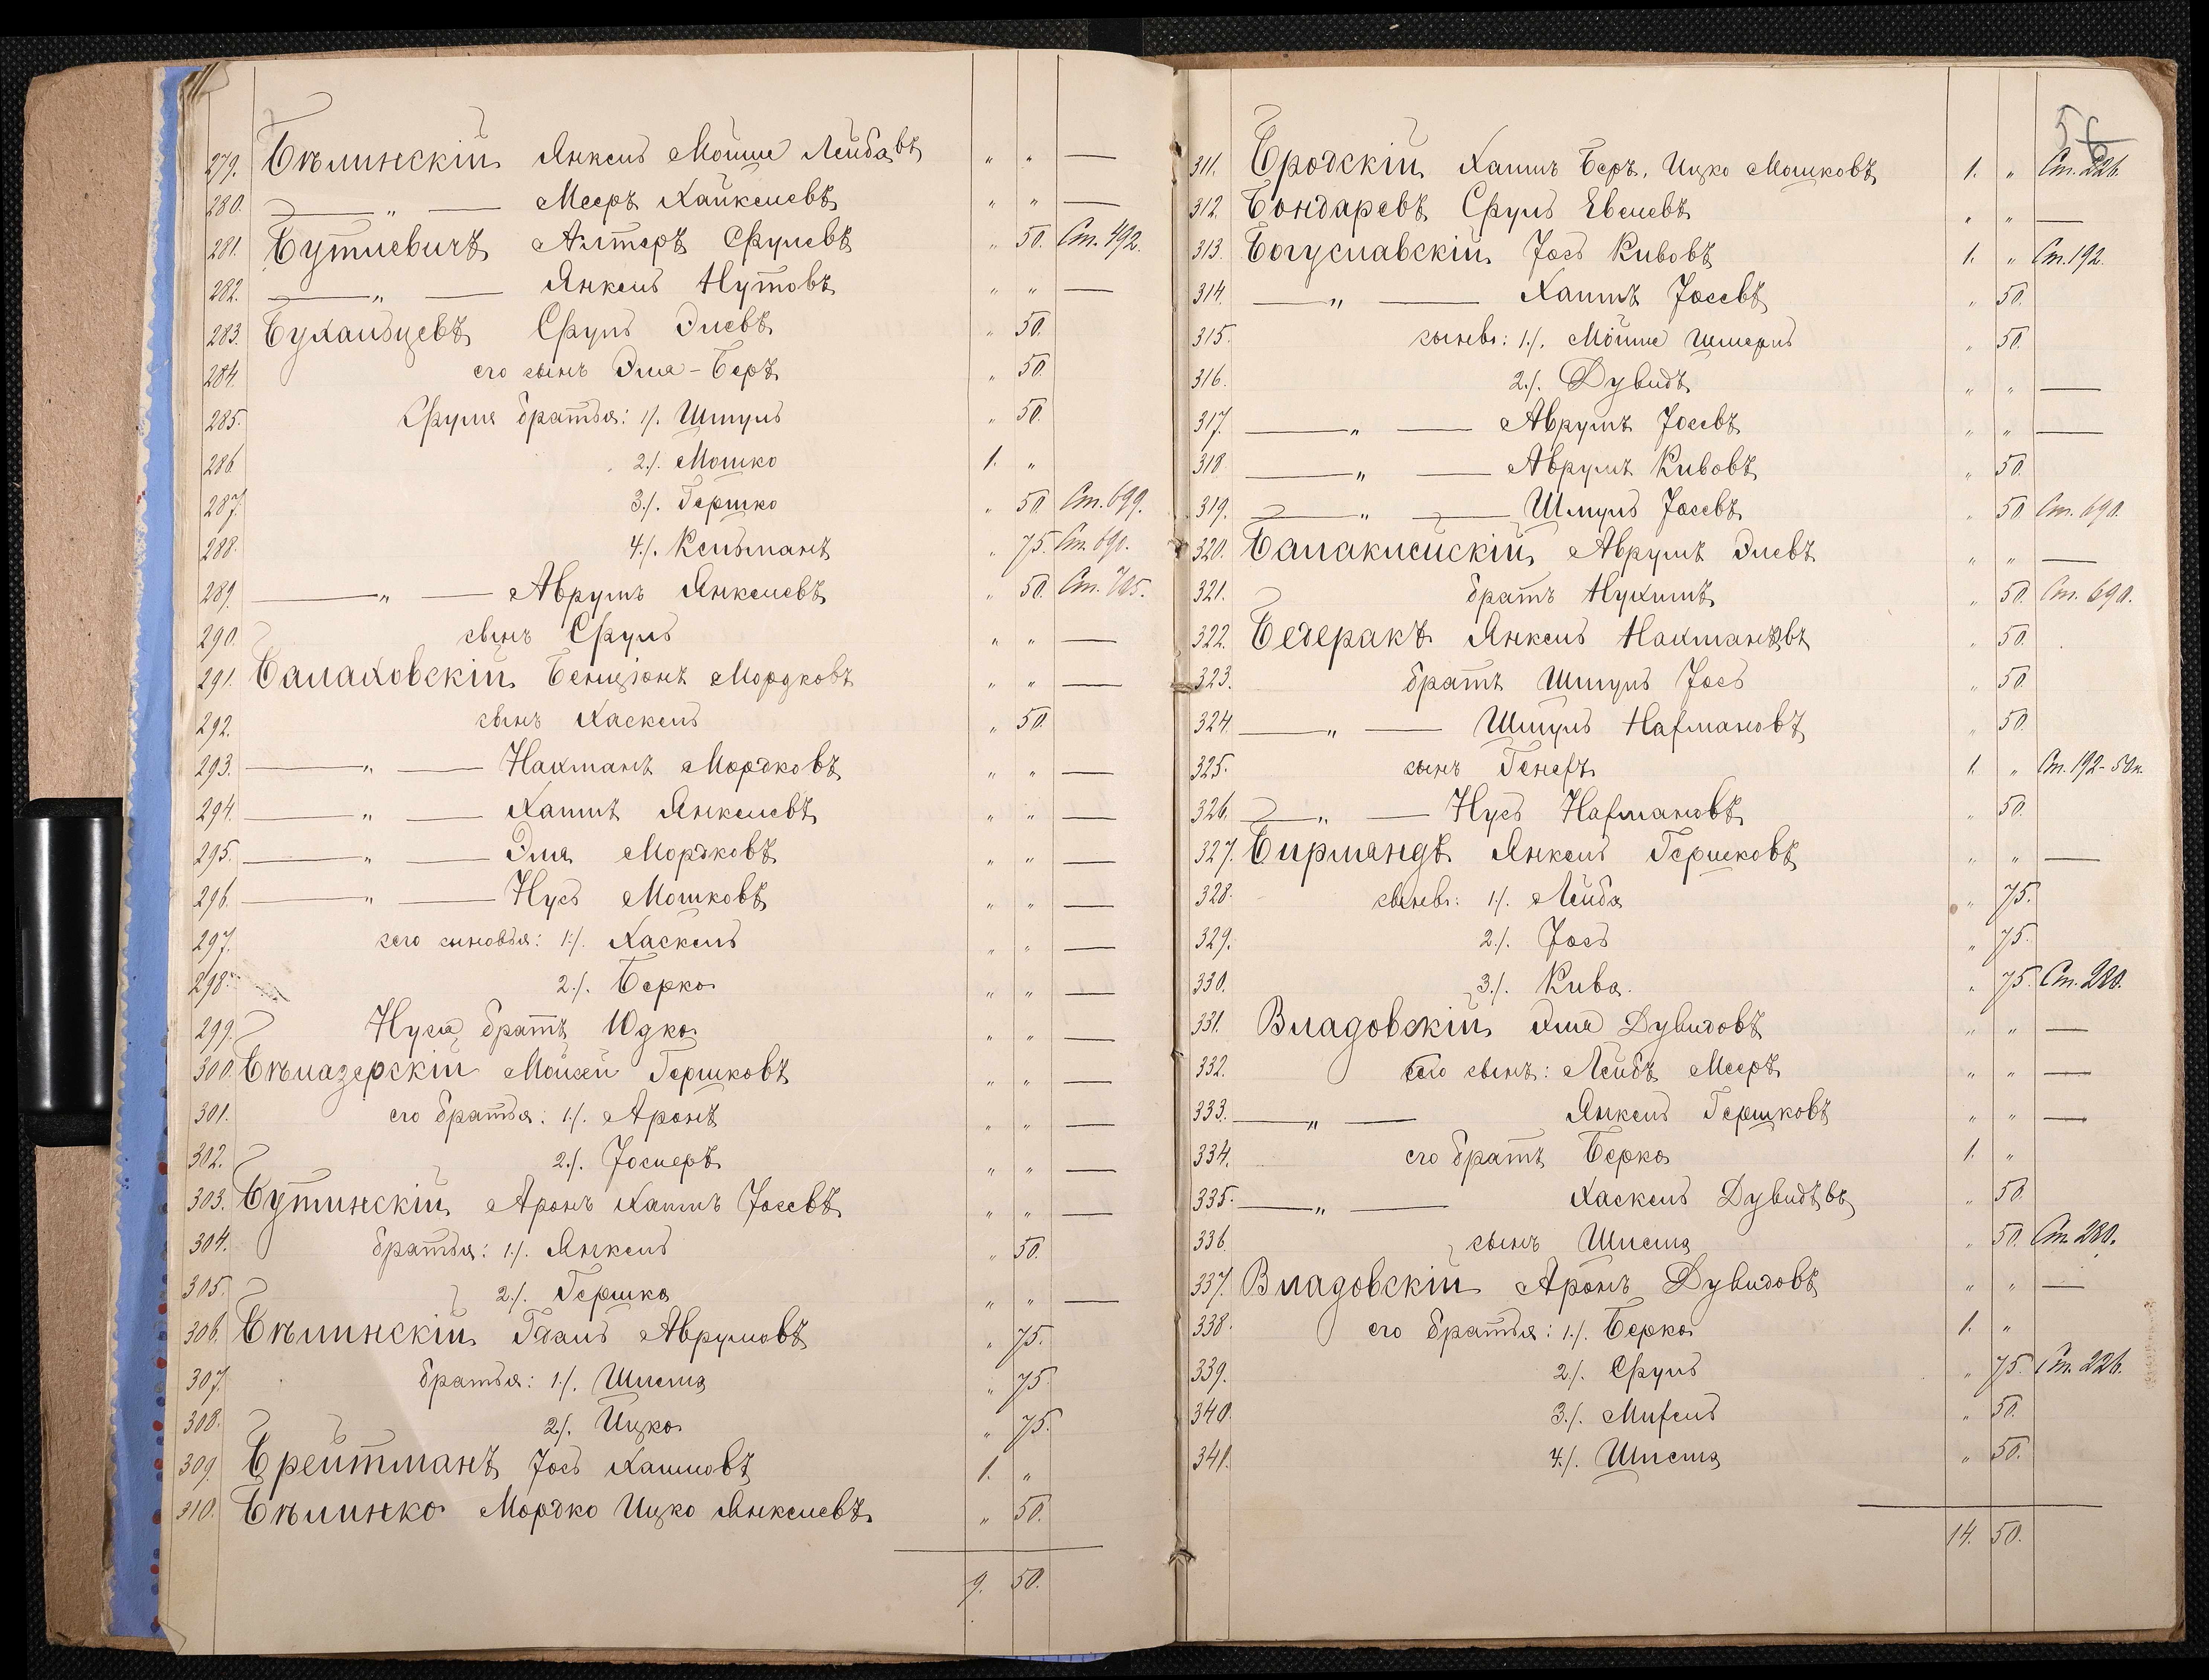 279. Бѣлинскій Янкель Мойше Лейбавъ " " —
280. — " — Мееръ Хайкелевъ " " —
281. Бутлевичъ Алтеръ Срулевъ " 50. Ст. 492.
282. — " — Янкель Нутовъ " " —
283. Бухальцевъ Сруль Элевъ " 50.
284. его сынъ Эля-Беръ " 50.
285. Сруля братья: 1/. Шмуль " 50.
286 2./. Мошко 1. "
287. 3./. Гершко " 50 Ст. 699.
288. 4./. Кельманъ " 75. Ст. 690.
289. — " — Аврумъ Янкелевъ " 50. Ст. 705.
290. сынъ Сруль " " —
291. Балаховскій Бенціонъ Мордковъ " " —
292. сынъ Хаскель " 50.
293. — " — Нахманъ Мордковъ " " —
294. — " — Хаимъ Янкелевъ " " —
295. — " — Эля Мордковъ " " —
296. — " — Нусь Мошковъ " " —
297. его сыновья: 1/. Хаскель " " —
298. 2./. Берко " " —
299. Нуся братъ Юдко " " —
300. Бѣлазерскій Мойсей Гершковъ " " —
301. его братья: 1/. Аронъ " " —
302. 2./. Госперъ " " —
303. Бутинскій Аронъ Хаимъ Іосевъ " " —
304. братья: 1/. Янкель " 50.
305. 2./. Гершко " " —
306. Бѣлинскій Гдаль Аврумовъ " 75.
307. братья: 1/. Шлема " 75.
308. 2/. Ицко " 75.
309 Брейтманъ Іось Хаимовъ 1. "
310. Бѣлинко Мордко Ицко Янкелевъ " 50.
9. 50.
56
311. Бродскій Хаимъ Беръ, Ицко Мошковъ 1. " Ст. 226.
312. Бондаревъ Сруль Евелевъ " " —
313. Богуславскій Іось Кивовъ 1. " Ст. 192.
314. — " — Хаимъ Іосевъ " 50.
315. сыневь: 1/. Мойше Шмерль " 50.
316. 2./. Дувидъ " " —
317. — " — Аврумъ Іосевъ " " —
318. — " — Аврумъ Кивовъ " 50.
319. — " — Шмуль Іосевъ " 50 Ст. 690.
320. Балаклейскій Аврумъ Элевъ " " —
321. братъ Нухимъ " 50. Ст. 690.
322. Бедеракъ Янкель Нахмановъ " 50.
323. братъ Шмуль Іось " 50.
324. — " — Шмуль Нафмановъ " 50.
325. сынъ Генехъ 1. " Ст. 192-50к.
326. — " — Нусь Нафмановъ " 50.
327. Бирмандъ Янкель Гершковъ " " —
328. сыневь: 1/. Лейба " 75.
329. 2./. Іось " 75.
330. 3./. Кива. " 75. Ст. 280.
331. Владовскій Эля Дувидовъ " " —
332. его сынъ: Лейбъ Мееръ " " —
333. — " — Янкель Гершковъ " " —
334. его братъ Берко 1. "
335. — " — Хаскель Дувидъвъ " 50
336. сынъ Шлема " 50 Ст. 280.
337. Владовскій Аронъ Дувидовъ " " —
338. его братья: 1./. Берко 1. "
339. 2./. Сруль " 75 Ст. 226.
340. 3./. Михель " 50.
341. 4./. Шлема " 50.
14. 50.